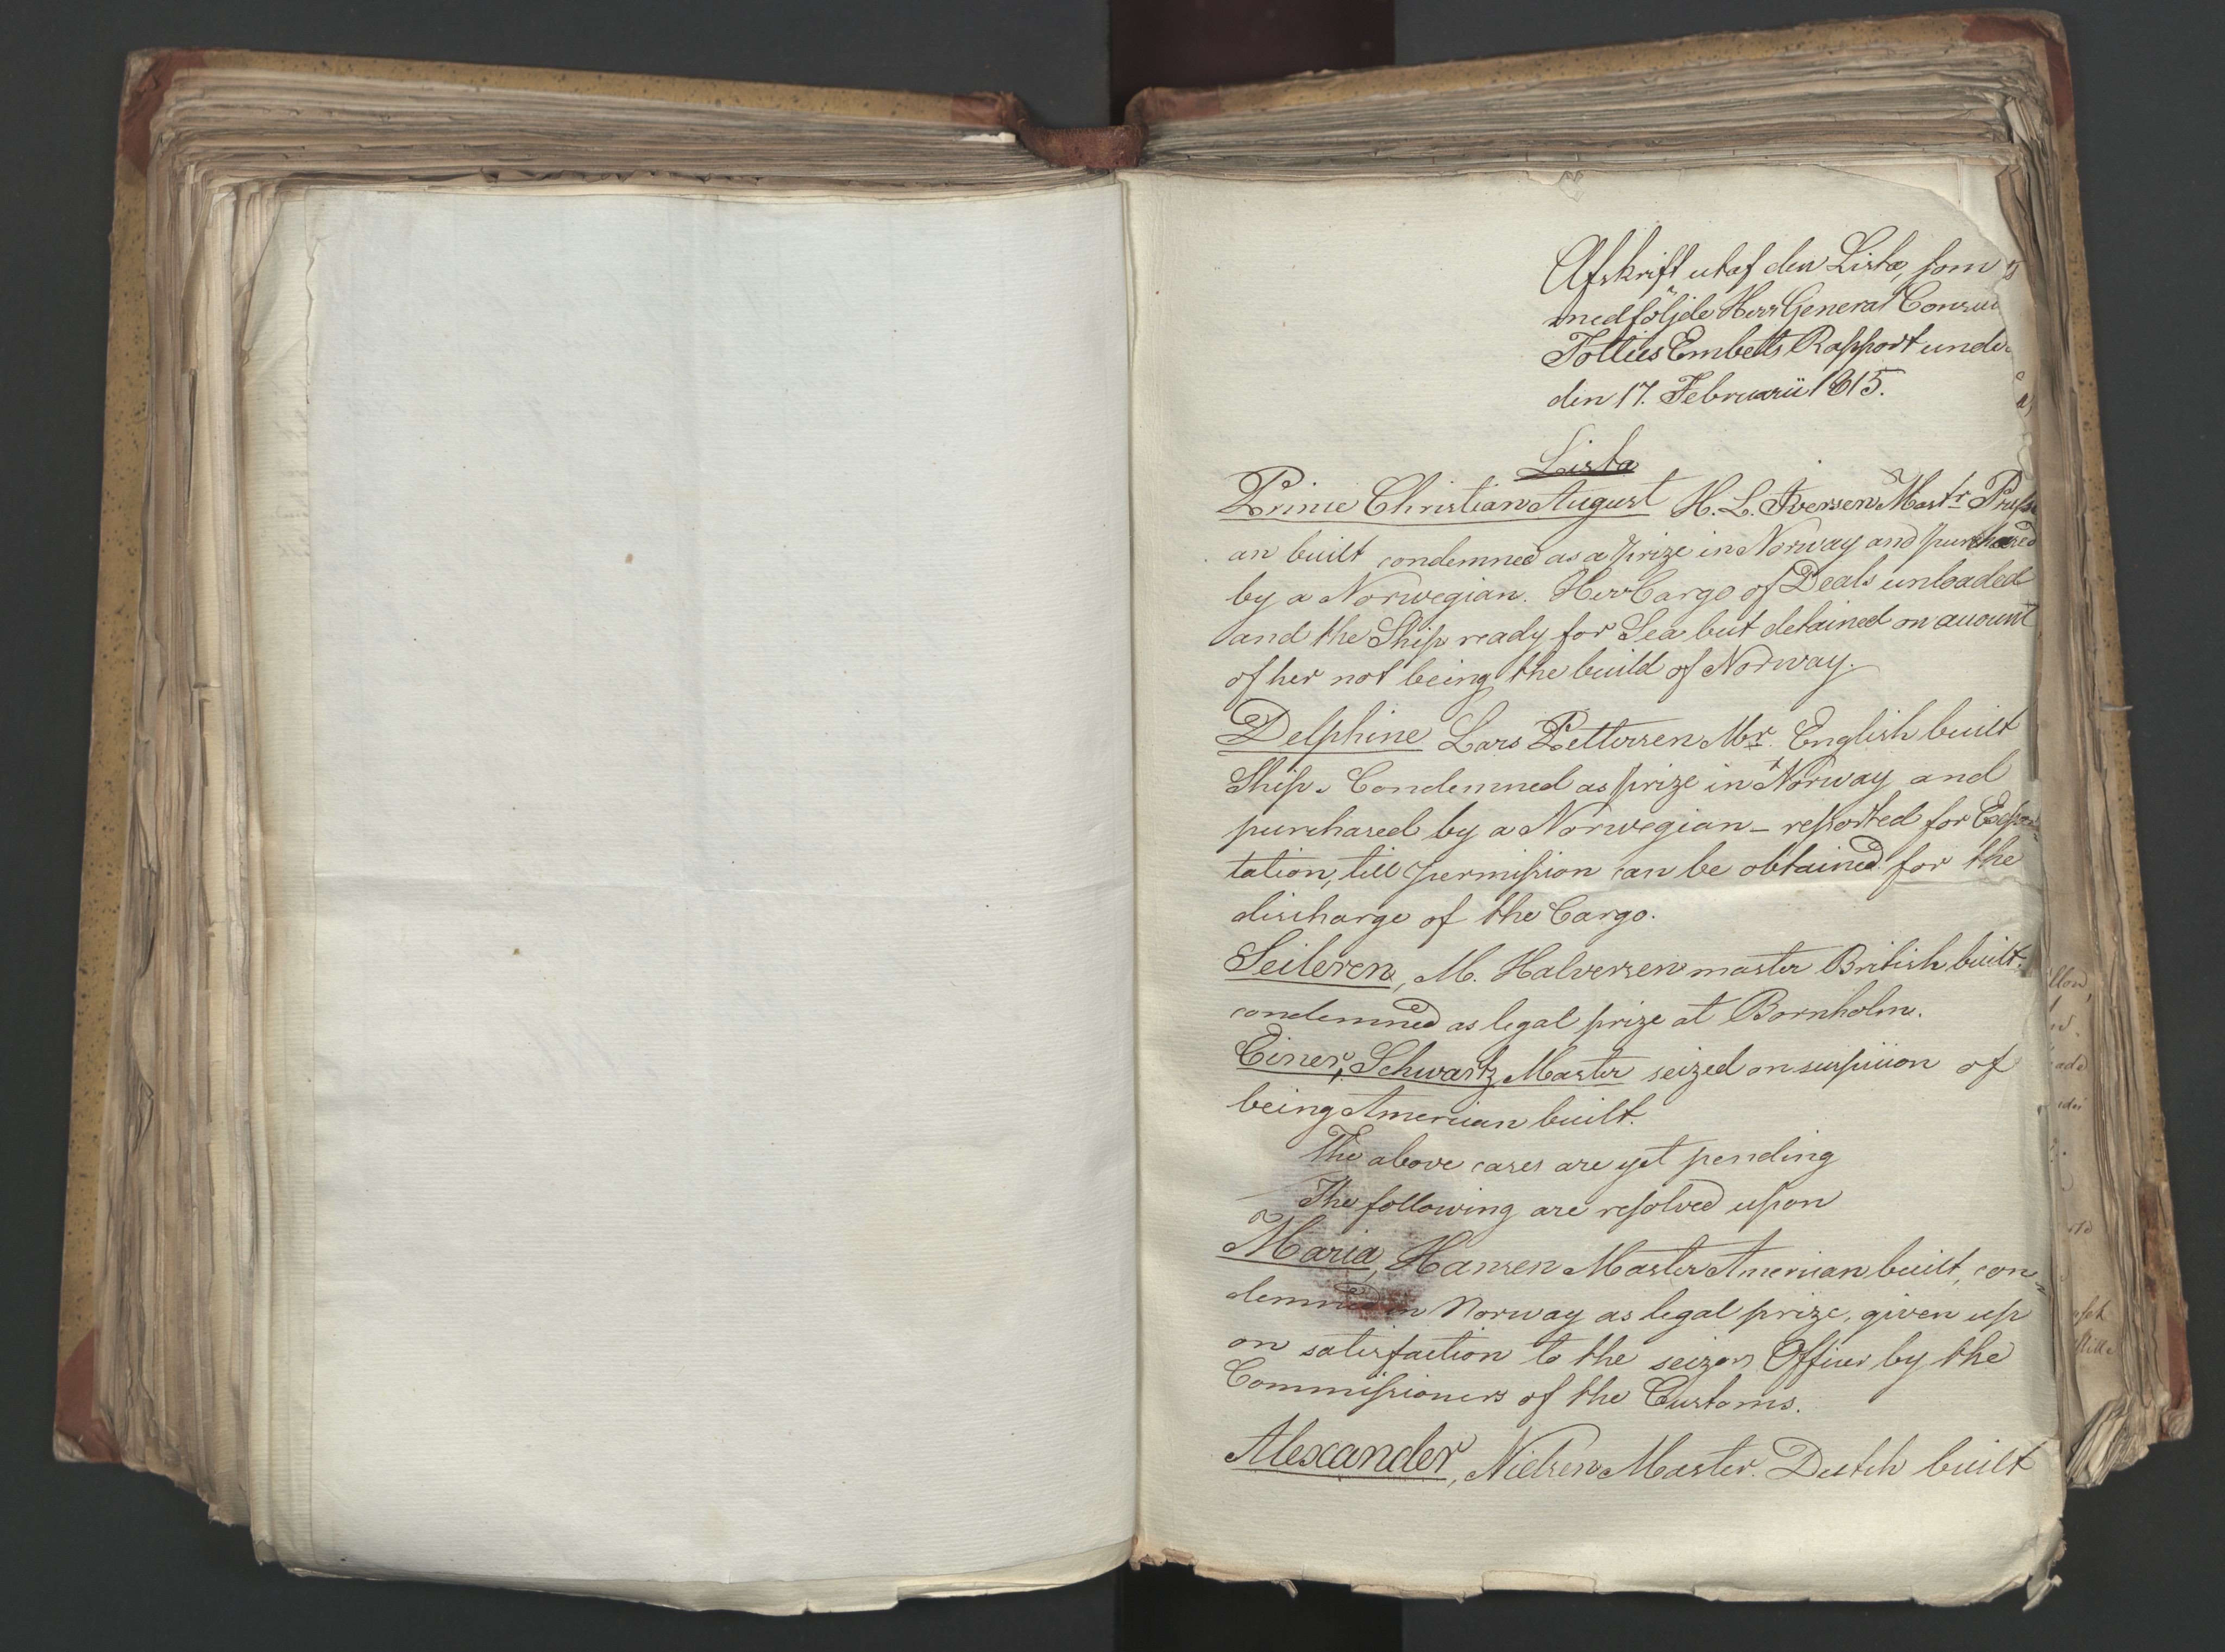 Afskrift utaf den Lista, som
medföljde Herr General Consul
Totties Embetts Rapport under
den 17. Februarii 1815.
Lista
Prince Christian August H. L. Iversen Mastr. Prussi
an built condemned as a prize in Norway and purchased
by a Norwegian. Her Cargo of Deals unloaded
and the Ship ready for Sea but detained on account
of her not being the build of Norway.
Delphine Lars Pettersen Mr. English built
Ship. Condemned as prize in Norway and
purchased by a Norwegian – reported for Expor-
tation, till permission can be obtained for the
discharge of the Cargo.
Seileren, M. Halversen master British built.
condemned as legal prize at Bornholm.
Einer, Schwartz Master seized on suspicion of
being American built.
The above cases are yet pending
The following are resolved upon
Maria, Hansen Master American built, con-
demned in Norway as legal prize, given up
on satisfaction to the seizors Officer by the
Commissioners of the Customs.
Alexander, Nielsen Master. Dutch built